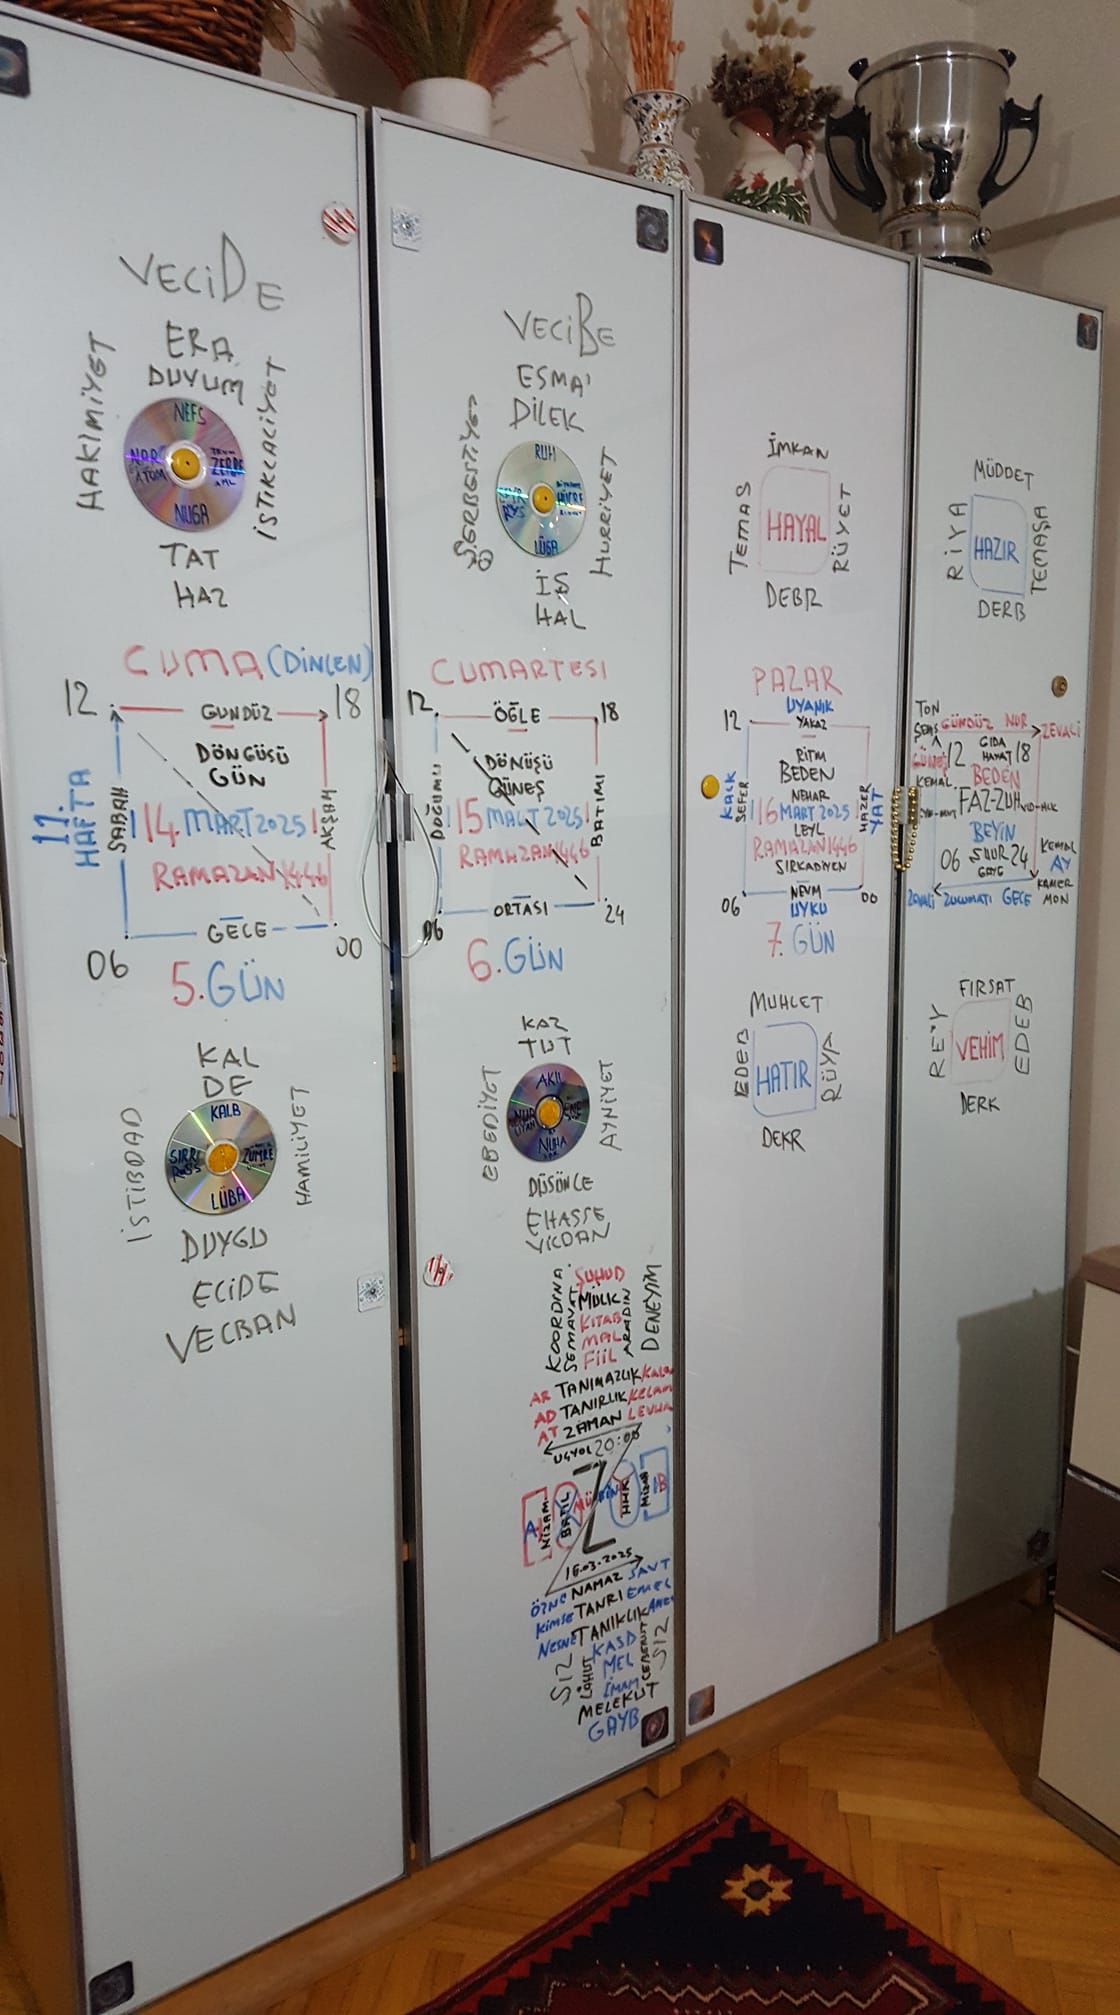 VECiDE
ERA
DUYUM
HAKİMİYET
İSTİKLACİYET
NEFS
NAR
ATOM
ZERRE
NUGA
TAT
HAZ
CUMA (DiNLEN)
12
GÜNDÜZ
18
DÖNGÜSÜ
GÜN
11.
HAFTA
SABAH
14. MART 2025
AKŞAM
RAMAZAN 1446
06
GECE
00
5. GÜN
KAL
DE
İSTİBDAD
HAMİLİYET
KALB
SIRR
ZÜMRE
LÜBA
DUYGU
ECİDE
VECBAN
VECİBE
ESMA'
DİLEK
SERBESTİYET
HURRİYET
RUH
HÜCRE
LÜGA
İŞ
HAL
CUMARTESI
12
ÖĞLE
18
DÖNÜŞÜ
GÜNEŞ
DOĞUMU
15 MART 2025
BATIMI
RAMAZAN 1446
06
ORTASI
24
6. GÜN
KAZ
TUT
EBEDİYET
AYNİYET
AKIL
NUR
ENE
NUHA
DÜŞÜNCE
EHASSE
VİCDAN
KOORDİNA
SEMAVAT
ŞUHUD
MÜLK
KİTAB
MAL
FİİL
ARADIN
DENEYİM
AR TANIMAZLIK
AD TANIRLIK KELAM
AT ZAMAN LEVHA
UÇYOL 20:00
A
NİZAM
BATIL
MÜBİN
HAK
MİZAN
B
Z
16.03.2025
ÖZNE NAMAZ SAVT
KİMSE TANRI EMEL
NESNE TANIKLIK
SIZ
LAHUT
KASD
MEL
İMAM
CEBERUT
SIZ
MELEKUT
GAYB
İMKAN
TEMAS
HAYAL
RÜYET
DEBR
PAZAR
UYANIK
12
YAKAZ
RİTM
BEDEN
NEHAR
KALK
SEFER
16 MART 2025
HAZER
YAT
LEYL
RAMAZAN 1446
SIRKADİYEN
06
NEVM
00
UYKU
7. GÜN
MUHLET
EDEB
HATIR
RÜYA
DEKR
MÜDDET
RİYA
HAZIR
TEMAŞA
DERB
TON
ŞEMS GÜNDÜZ NUR ZEVALİ
GÜNEŞ 12 GIDA 18
HAYAT
KEMAL BEDEN
FAZ-ZUH
BEYİN
06 ŞUUR 24
KEMAL
AY
KAMER
ZEVALİ ZULUMATI GECE MON
FIRSAT
RE'Y
VEHİM
EDEB
DERK